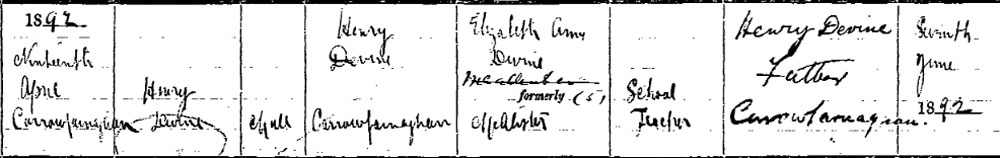 1892
Nineteenth
April
Carrowfarnaghan
Henry
Devine
Male
Henry
Devine
Carrowfarnaghan
Elizabeth Anny
Devine
formerly (5)
McAlister
School
Teacher
Henry Devine
Father
Carrowfarnaghan.
Seventh
June
1892